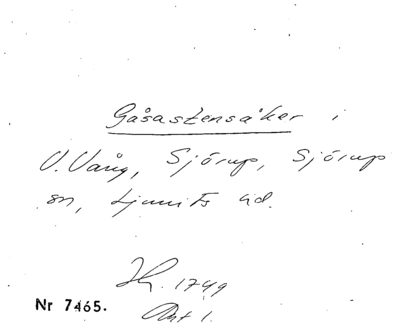 Gåsastensåker i
V. Vång, Sjörup, Sjörup
sn, Ljunits hd.
Hy. 1749
Akt 1.
Nr 7465.